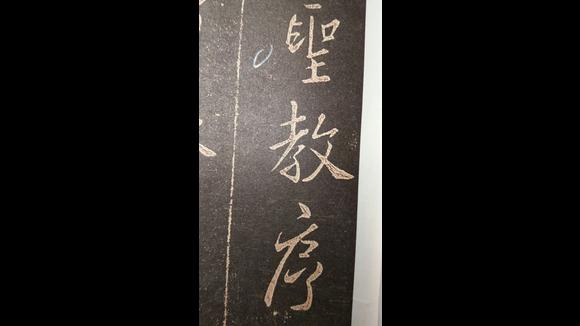 聖教序